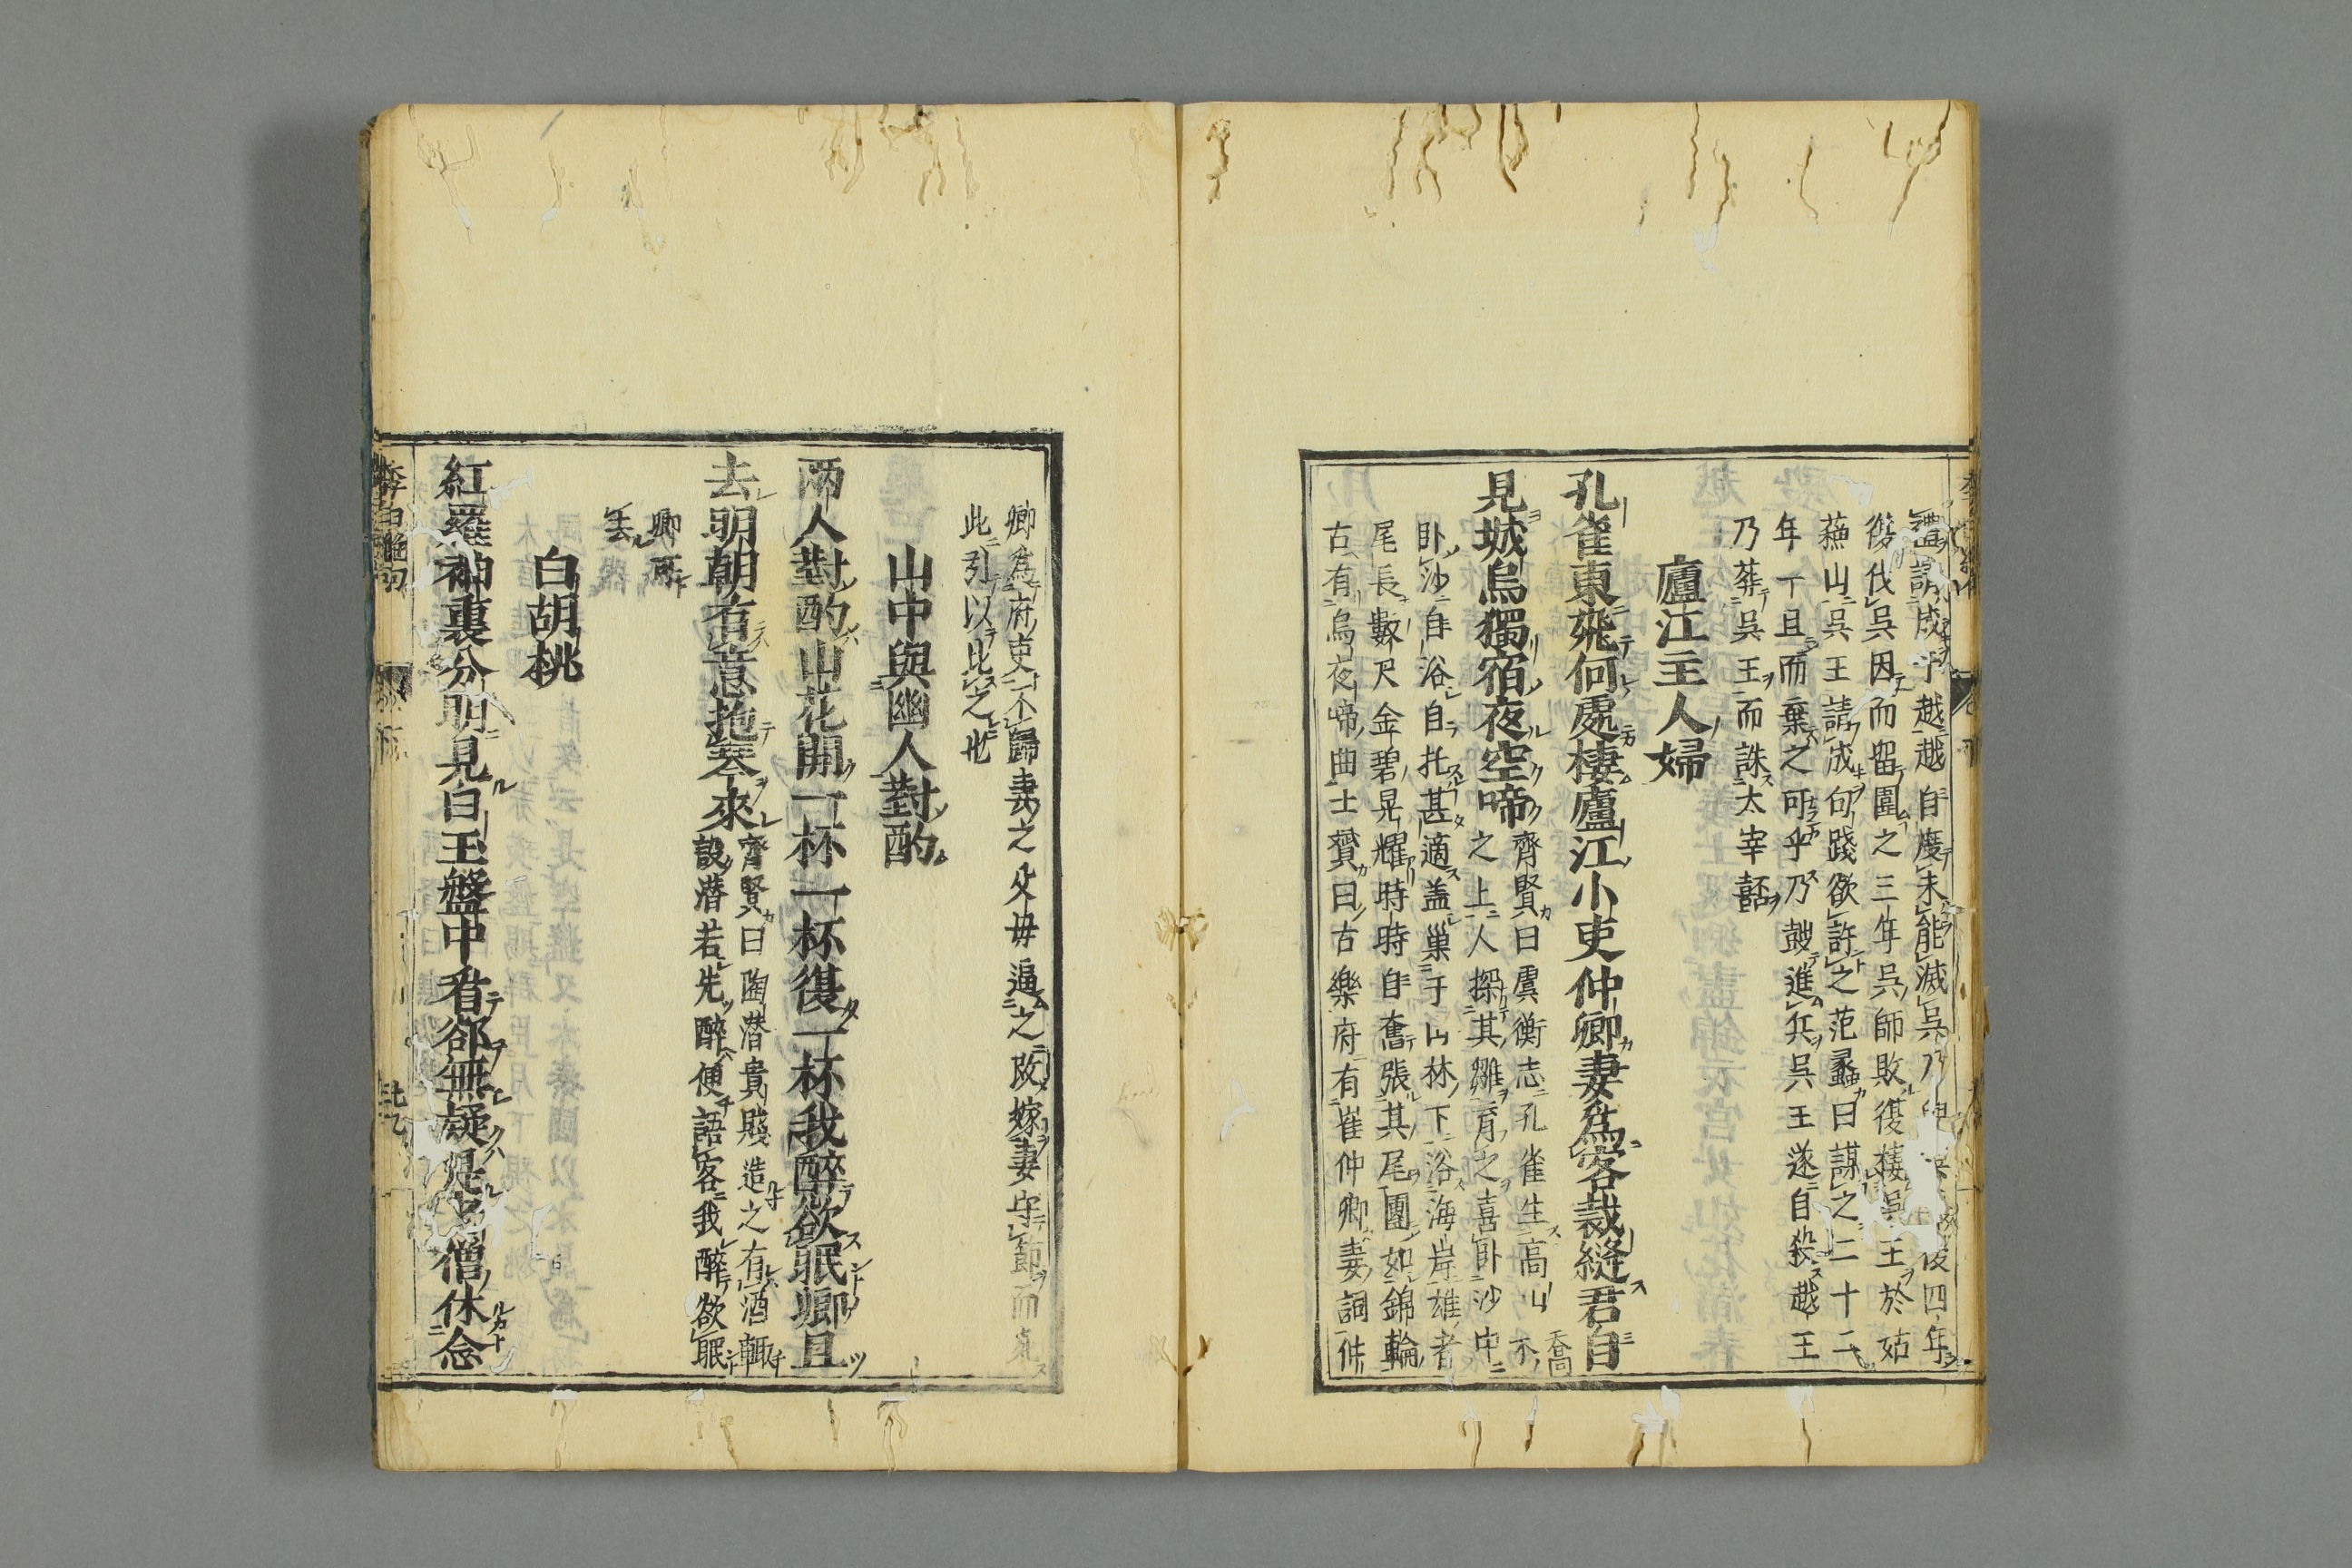 禮請成于越越自度未能滅吳乃 四年
復伐吳因而留圍之三年吳師敗復棲吳王於姑
蘓山吳王請成句踐欲許之范蠡曰謀之二十二
年一旦而棄之可乎乃鼓進兵吳王遂自殺越王
乃葬吳王而誅太宰嚭
廬江主人婦
孔雀東飛何處棲廬江小吏仲卿妻爲客裁縫君自
見城烏獨宿夜空啼
齊賢曰虞衡志孔雀生高山喬木
之上人探其雛育之喜卧沙中
卧沙自浴自托甚適盖巢于山林下浴海岸雄者
尾長數尺金碧晃耀時時自奮張其尾團如錦輪
古有烏夜啼曲士贇曰古樂府有崔仲卿妻詞仲
卿爲府吏不歸妻之父母逼之改嫁妻守節而
此引以此之也
山中與幽人對酌
兩人對酌山花開一杯一杯復一杯我醉欲眠卿且
去明朝有意抱琴來
齊賢曰陶潜貴賤造之有酒輒
設潜若先醉便語客我醉欲眠
卿可
去
白胡桃
紅羅袖裏分明見白玉盤中看卻無疑是老僧休念
李白絶句